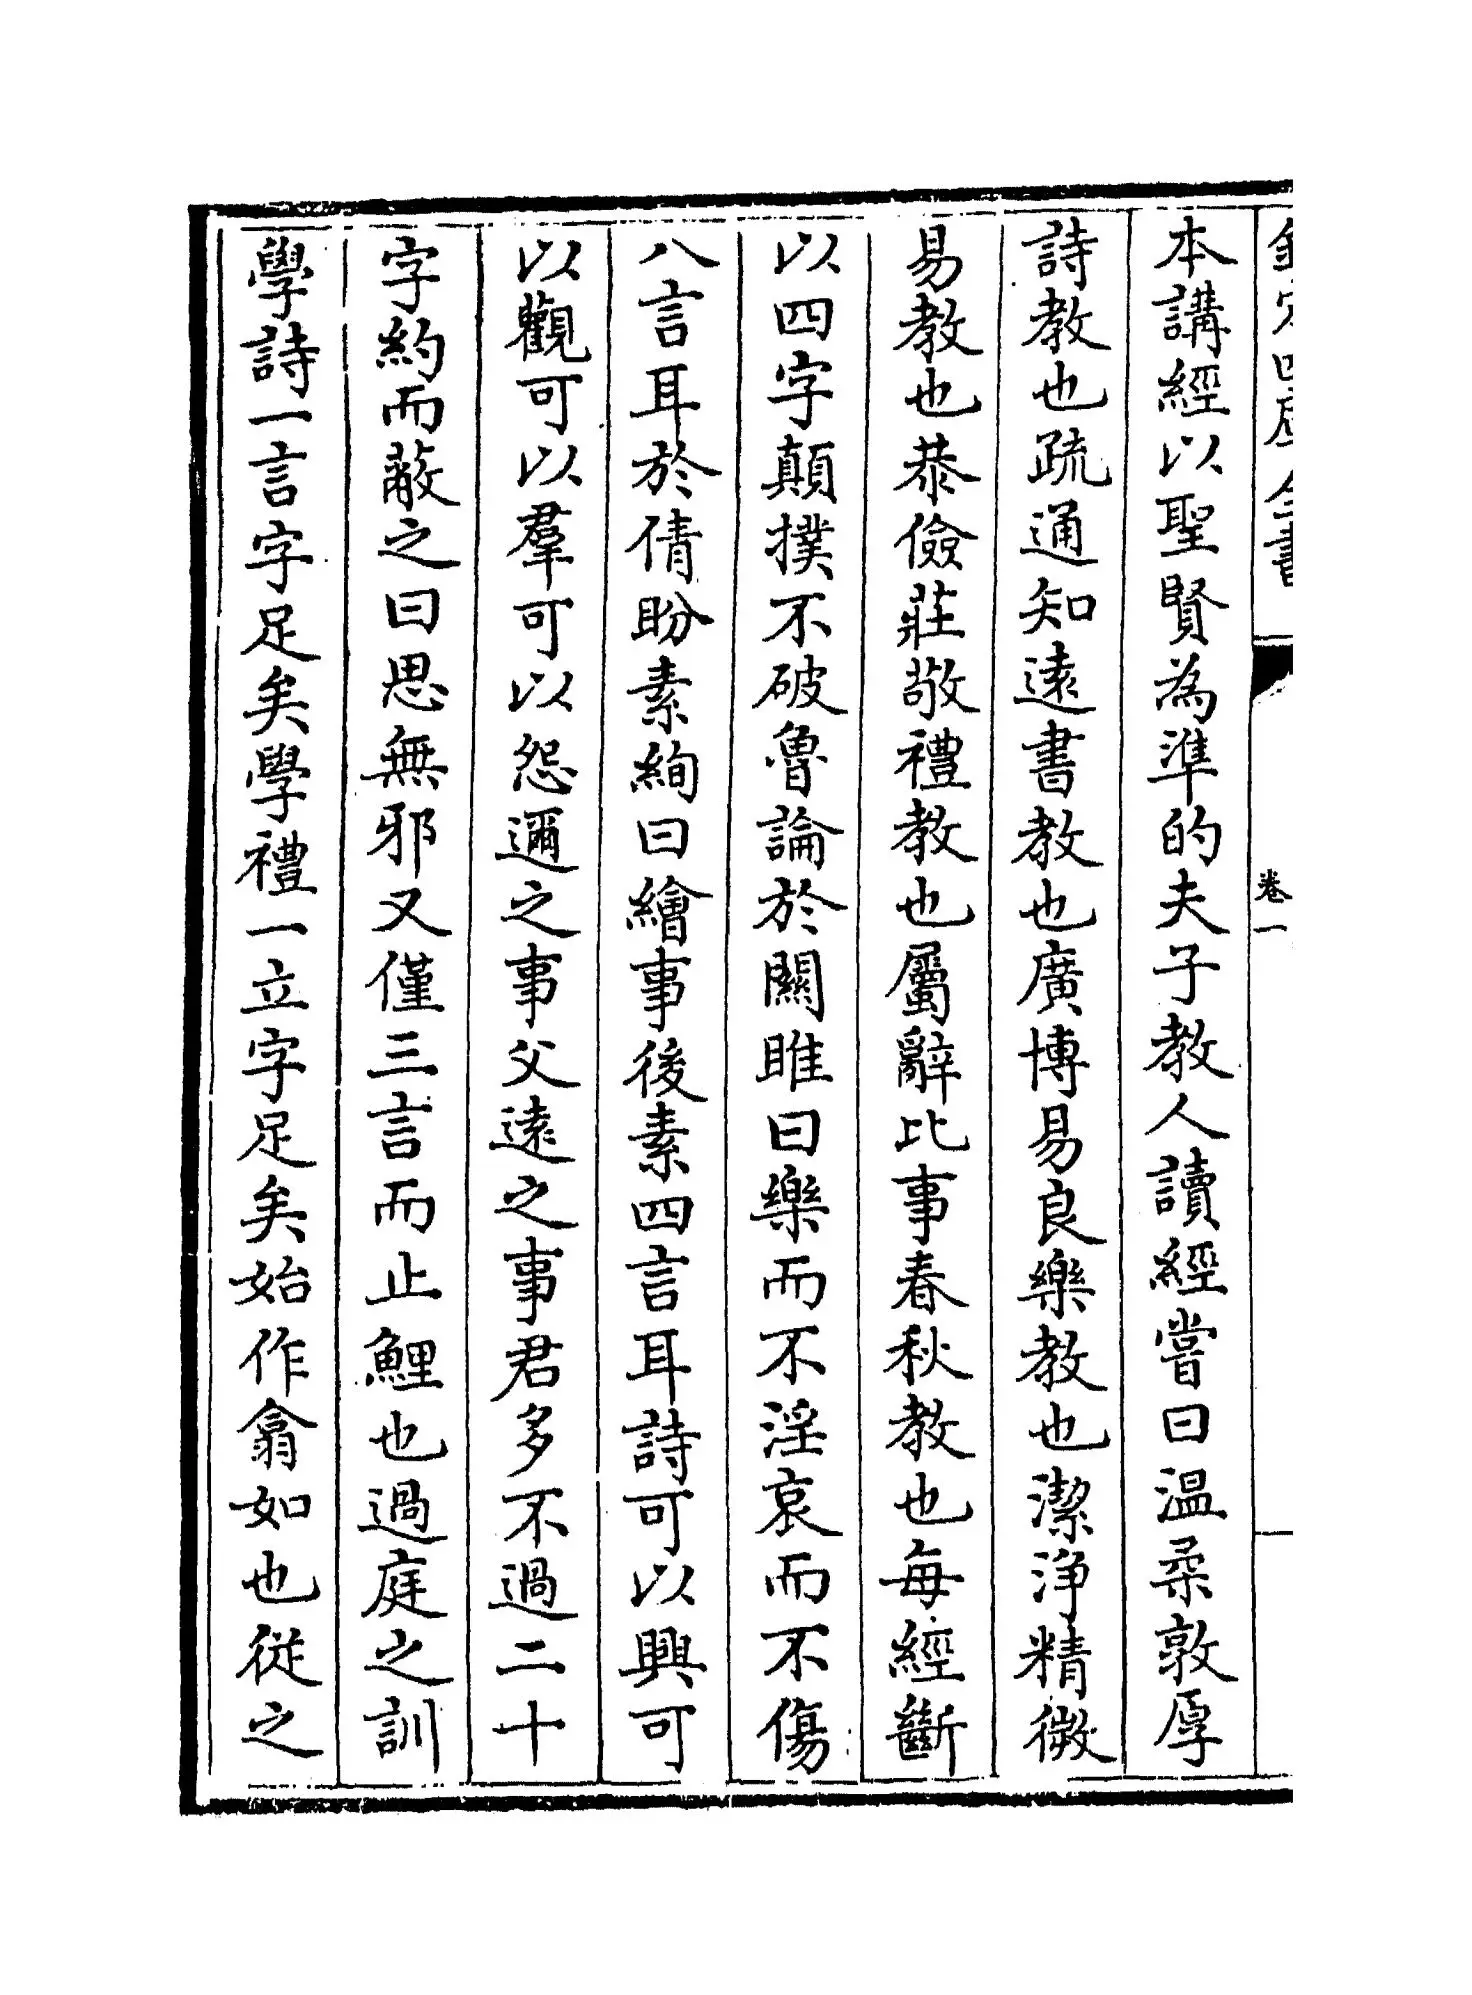 欽定四庫全書
卷一
本講經以聖賢為準的夫子教人讀經嘗曰温柔敦厚
詩教也疏通知逺書教也廣博易良樂教也潔浄精微
易教也恭儉莊敬禮教也屬辭比事春秋教也每經斷
以四字顛撲不破魯論於關雎曰樂而不淫哀而不傷
八言耳於倩盼素絢曰繪事後素四言耳詩可以興可
以觀可以羣可以怨邇之事父逺之事君多不過二十
字約而蔽之曰思無邪又僅三言而止鯉也過庭之訓
學詩一言字足矣學禮一立字足矣始作翕如也從之